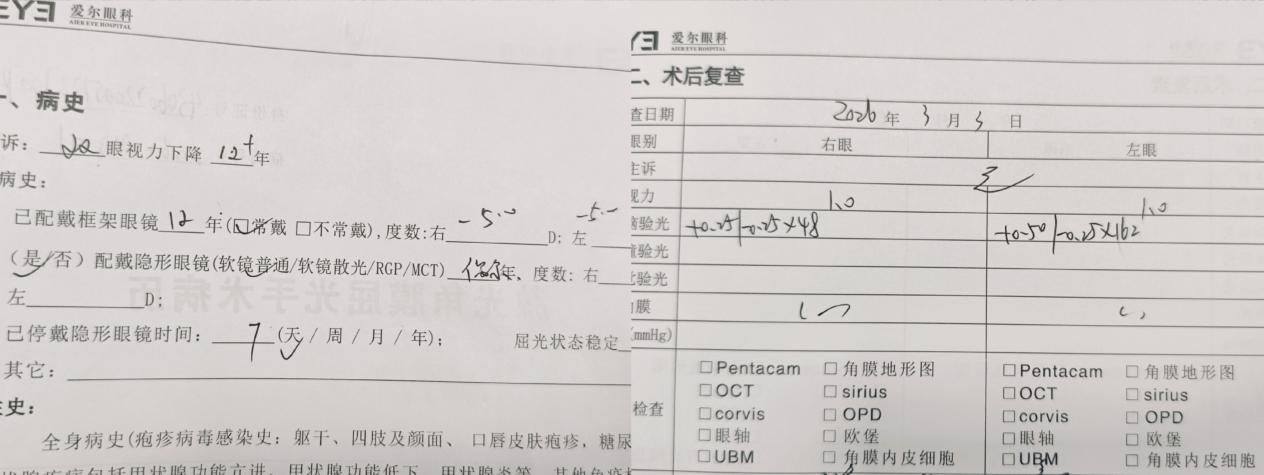 EYE 爱尔眼科
AIER EYE HOSPITAL
一、病史
诉：双眼视力下降 12+年
病史：
已配戴框架眼镜 12 年(☑常戴 □不常戴)，度数：右 -5.00 D；左 -5.
（是/否）配戴隐形眼镜(软镜普通/软镜散光/RGP/MCT) 偶尔年，度数：右
左 D；
已停戴隐形眼镜时间： 7 (天 / 周 / 月 / 年)； 屈光状态稳定
其它：
史：
全身病史(疱疹病毒感染史：躯干、四肢及颜面、 口唇皮肤疱疹，糖尿
甲状腺功能亢进、甲状腺功能低下、甲状腺炎等、其他免疫
爱尔眼科
AIER EYE HOSPITAL
二、术后复查
查日期 2026 年 3 月 3 日
眼别 右眼 左眼
主诉
视力 1.0 1.0
验光 +0.25/-0.25×48 +0.50/-0.25×162
验光
验光
膜
(mmHg)
检查
□Pentacam □角膜地形图 □Pentacam □角膜地形图
□OCT □sirius □OCT □sirius
□corvis □OPD □corvis □OPD
□眼轴 □欧堡 □眼轴 □欧堡
□UBM □角膜内皮细胞 □UBM □角膜内皮细胞